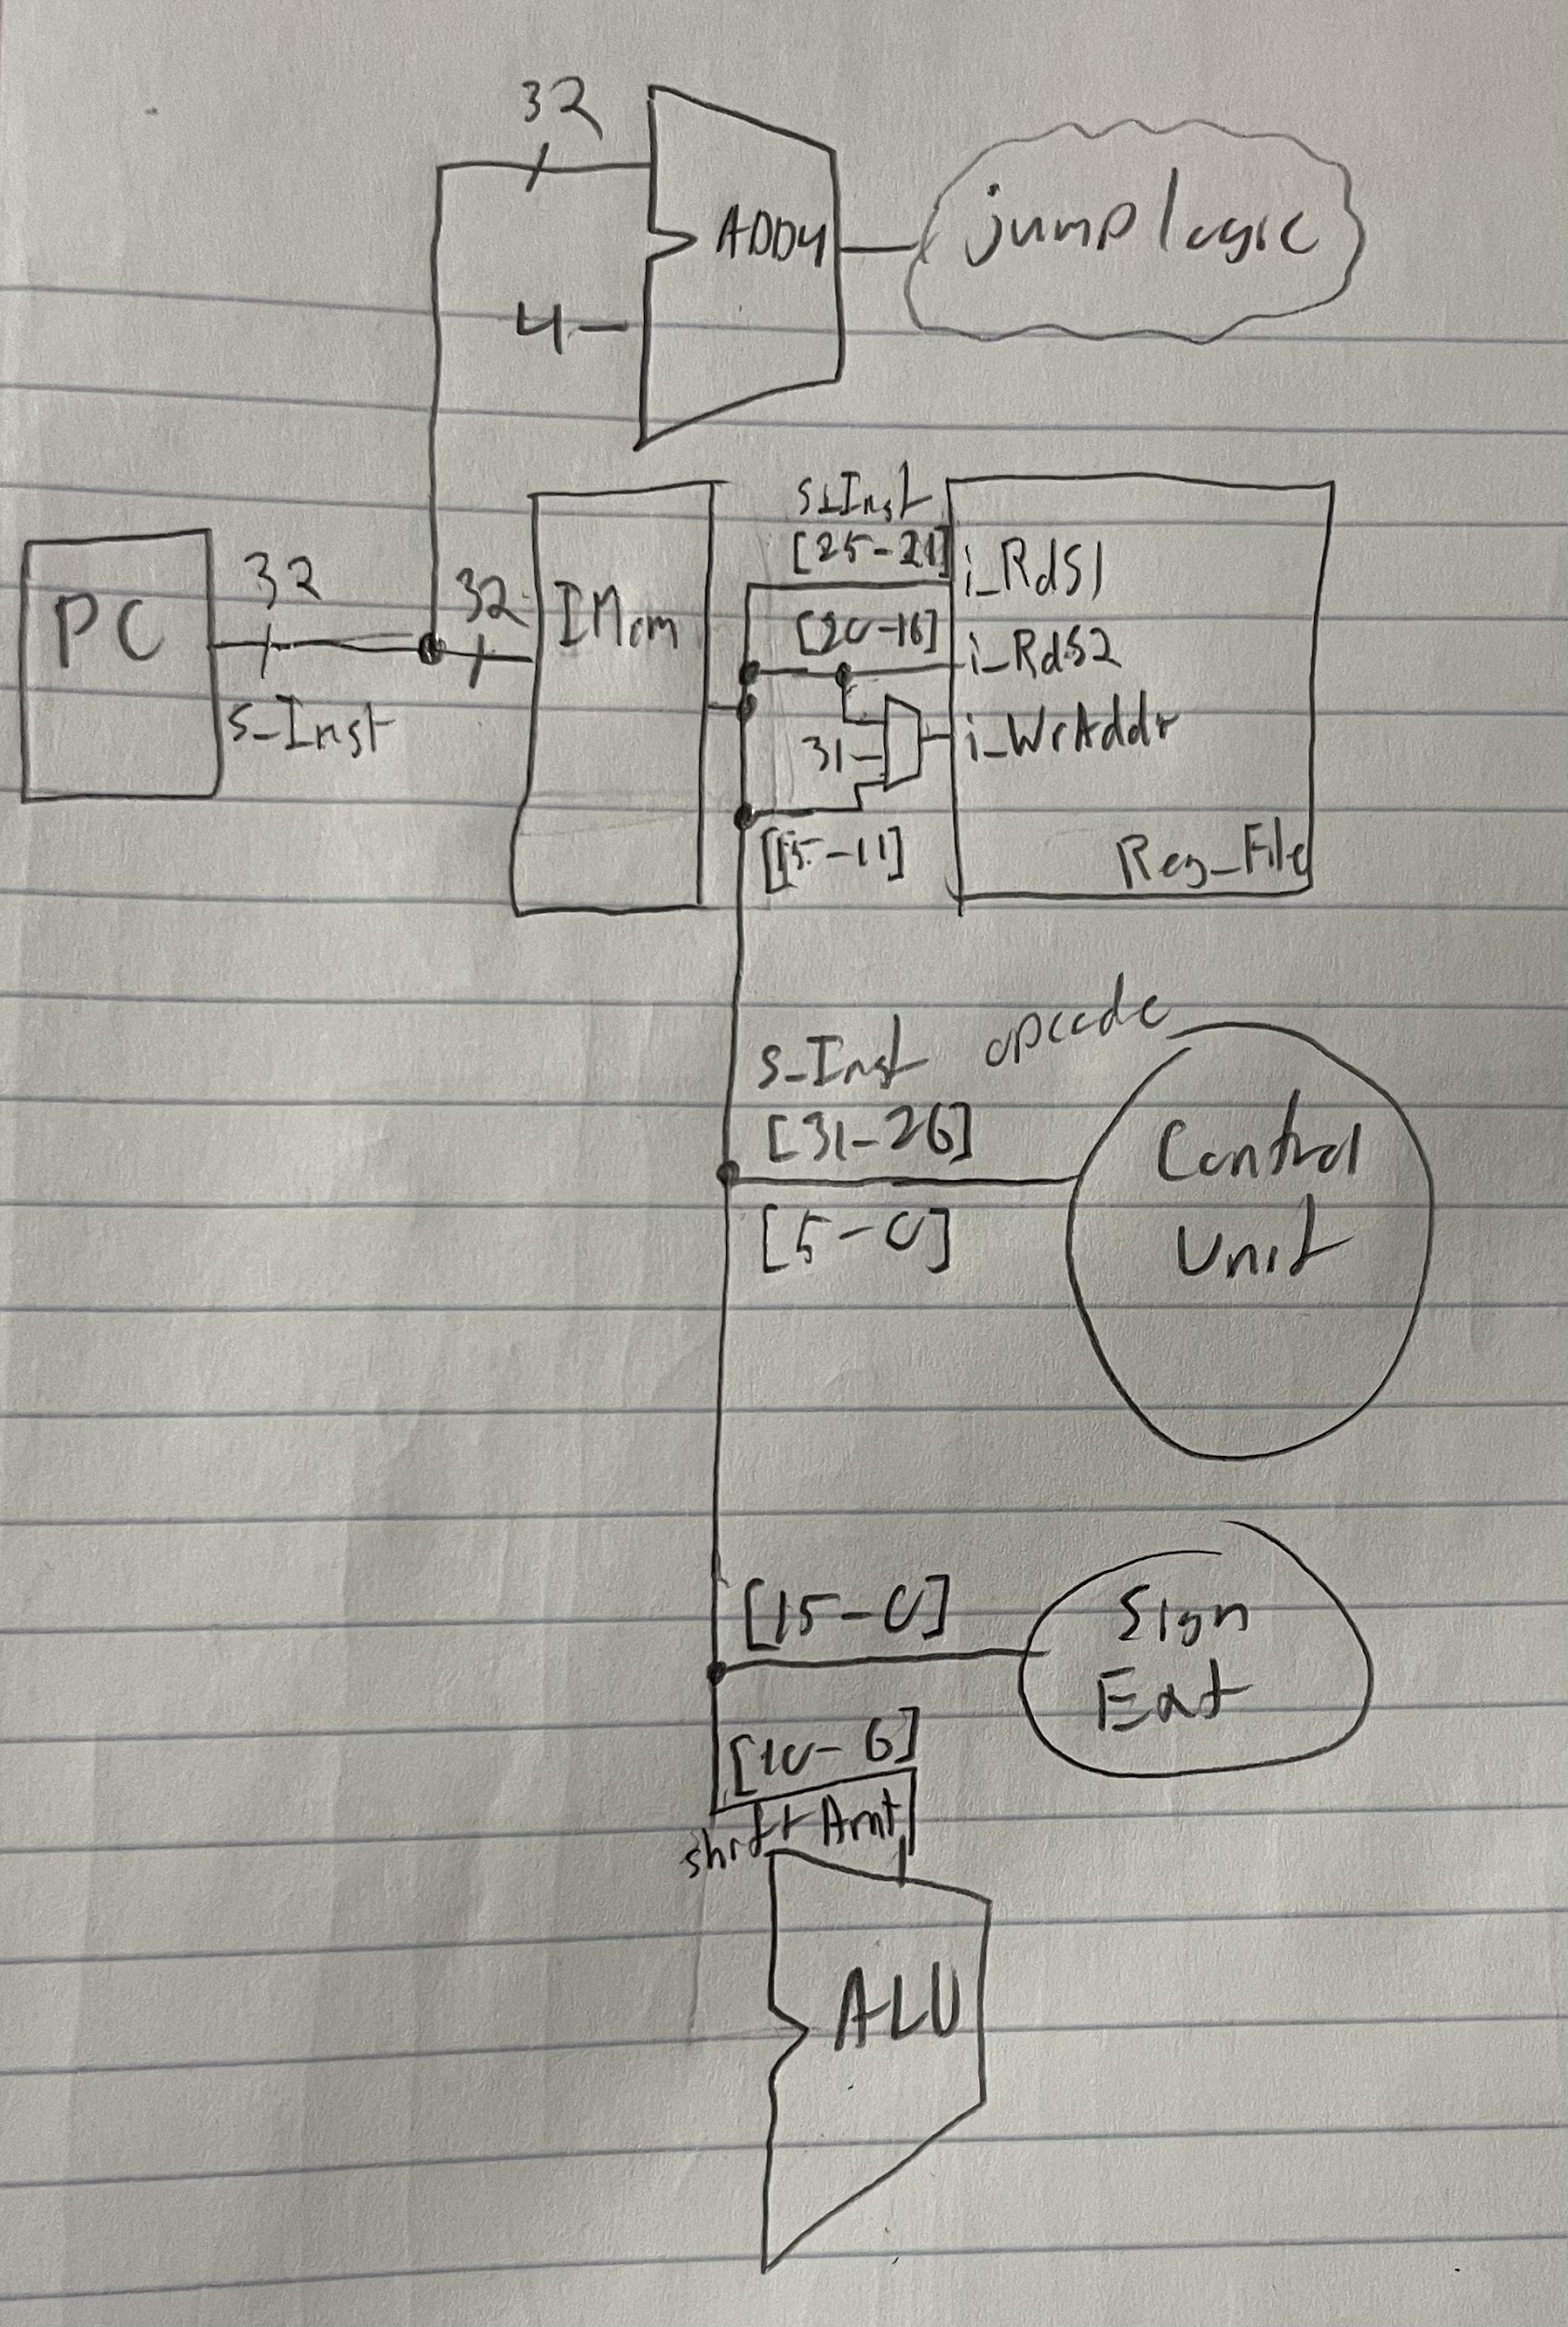 32
ADD4
jump logic
4
PC
32
s_Inst
32
IMem
s_Inst
[25-21]
i_RdS1
[20-16]
i_RdS2
31
i_WrAddr
[15-11]
Reg_File
s_Inst opcode
[31-26]
[5-0]
Control
Unit
[15-0]
Sign
Ext
[10-6]
shift Amt
ALU